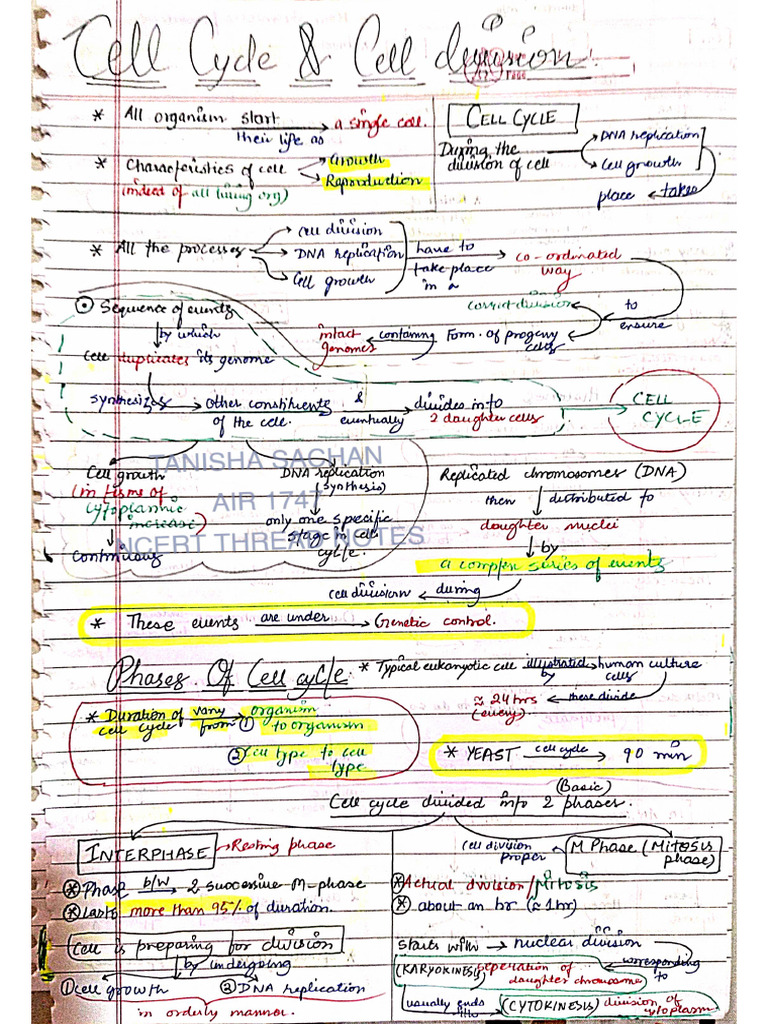 Cell Cycle & Cell division
* All organism start their life as a single cell.
* Characteristics of cell Growth
Reproduction
(indeed of all living org)
CELL CYCLE
During the division of cell DNA replication
Cell growth
takes place
* All the processes cell division
DNA replication
Cell growth
have to take place in a co-ordinated way
to ensure
correct division
Form. of progeny cells containing intact genomes
Sequence of events
by which
Cell duplicates its genome
synthesizes Other constituents of the cell. & eventually divides into 2 daughter cells
CELL CYCLE
Cell growth
(in terms of cytoplasmic increase)
Continuous
DNA replication
(synthesis)
only one specific stage in cell cycle.
TANISHA SACHAN
AIR 1747
NCERT THREAD NOTES
Replicated chromosomes (DNA)
then distributed to
daughter nuclei
by
a complex series of events
during cell division
* These events are under Genetic control.
Phases Of Cell cycle
* Typical eukaryotic cell illustrated by human culture cells
these divide
≈ 24 hrs
(every)
* Duration of cell cycle vary from ① organism to organism
② Cell type to cell type
* YEAST cell cycle 90 min
(Basic)
Cell cycle divided into 2 phases.
INTERPHASE Resting phase
* Phase b/w 2 successive M-phase
* Lasts more than 95% of duration.
Cell is preparing for division
by undergoing
① Cell growth ② DNA replication
in orderly manner.
cell division proper M Phase (Mitosis phase)
* Actual division/Mitosis
* about an hr (≈ 1hr)
starts with nuclear division
corresponding to
(KARYOKINESIS) seperation of daughter chromosome
usually ends (CYTOKINESIS) division of cytoplasm